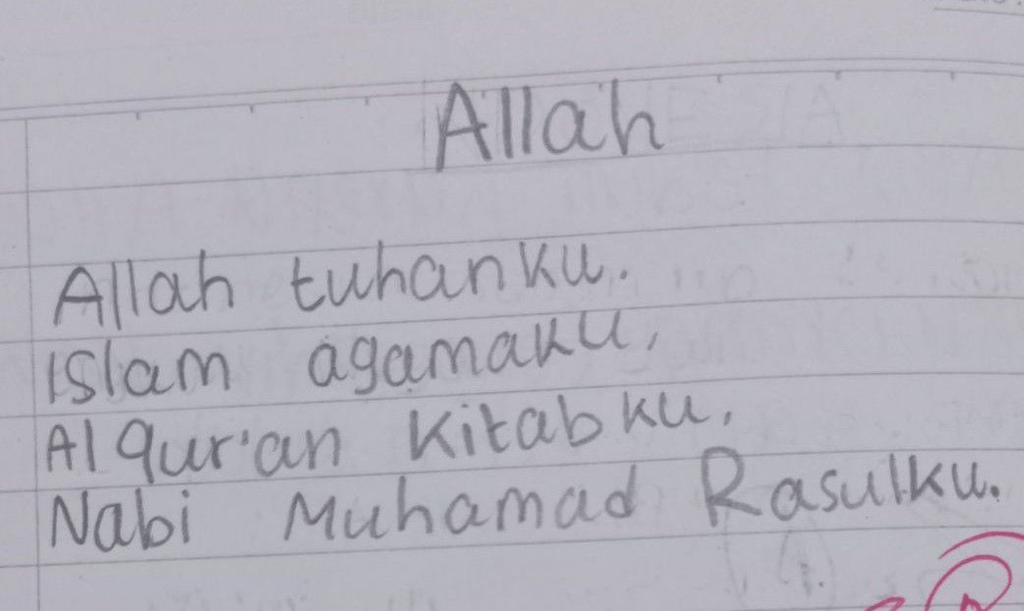 Allah
Allah tuhanku.
Islam agamaku,
Al qur'an Kitabku,
Nabi Muhamad Rasulku.